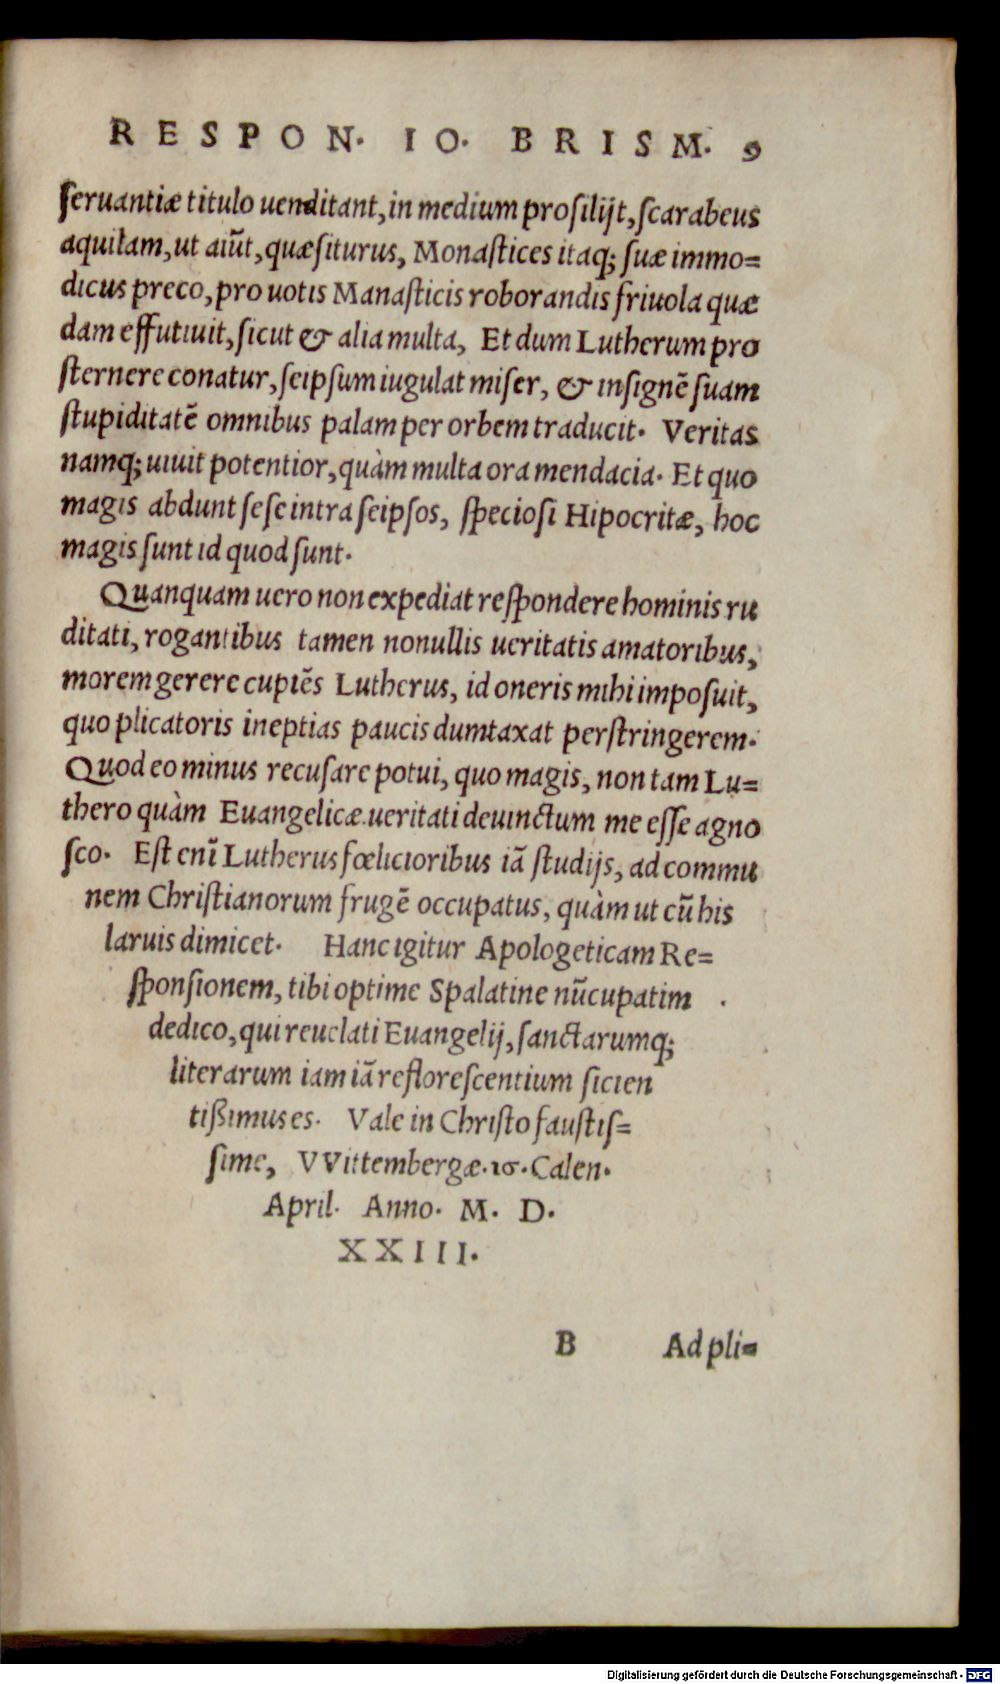 RESPON. IO. BRISM. 9
ſeruantiæ titulo uenditant, in medium proſilijt, ſcarabeus
aquilam, ut aiũt, quæſiturus, Monaſtices itaq; ſuæ immo=
dicus preco, pro uotis Manaſticis roborandis friuola quæ
dam effutiuit, ſicut & alia multa, Et dum Lutherum pro
ſternere conatur, ſeipſum iugulat miſer, & inſignẽ ſuam
ſtupiditatẽ omnibus palam per orbem traducit. Veritas
namq; uiuit potentior, quàm multa ora mendacia. Et quo
magis abdunt ſeſe intra ſeipſos, ſpecioſi Hipocritæ, hoc
magis ſunt id quod ſunt.
Quanquam uero non expediat reſpondere hominis ru
ditati, rogantibus tamen nonullis ueritatis amatoribus,
morem gerere cupiẽs Lutherus, id oneris mihi impoſuit,
quo plicatoris ineptias paucis dumtaxat perſtringerem.
Quod eo minus recuſare potui, quo magis, non tam Lu=
thero quàm Euangelicæ ueritati deuinctum me eſſe agno
ſco. Eſt enĩ Lutherus fœlicioribus iã ſtudijs, ad commu
nem Chriſtianorum frugẽ occupatus, quàm ut cũ his
laruis dimicet. Hanc igitur Apologeticam Re=
ſponſionem, tibi optime Spalatine nũcupatim
dedico, qui reuelati Euangelij, ſanctarumq;
literarum iam iã refloreſcentium ſicien
tißimus es. Vale in Chriſto fauſtiſ=
ſime, VVittembergæ. 16. Calen.
April. Anno. M. D.
XXIII.
B Ad pli=
Digitalisierung gefördert durch die Deutsche Forschungsgemeinschaft - DFG